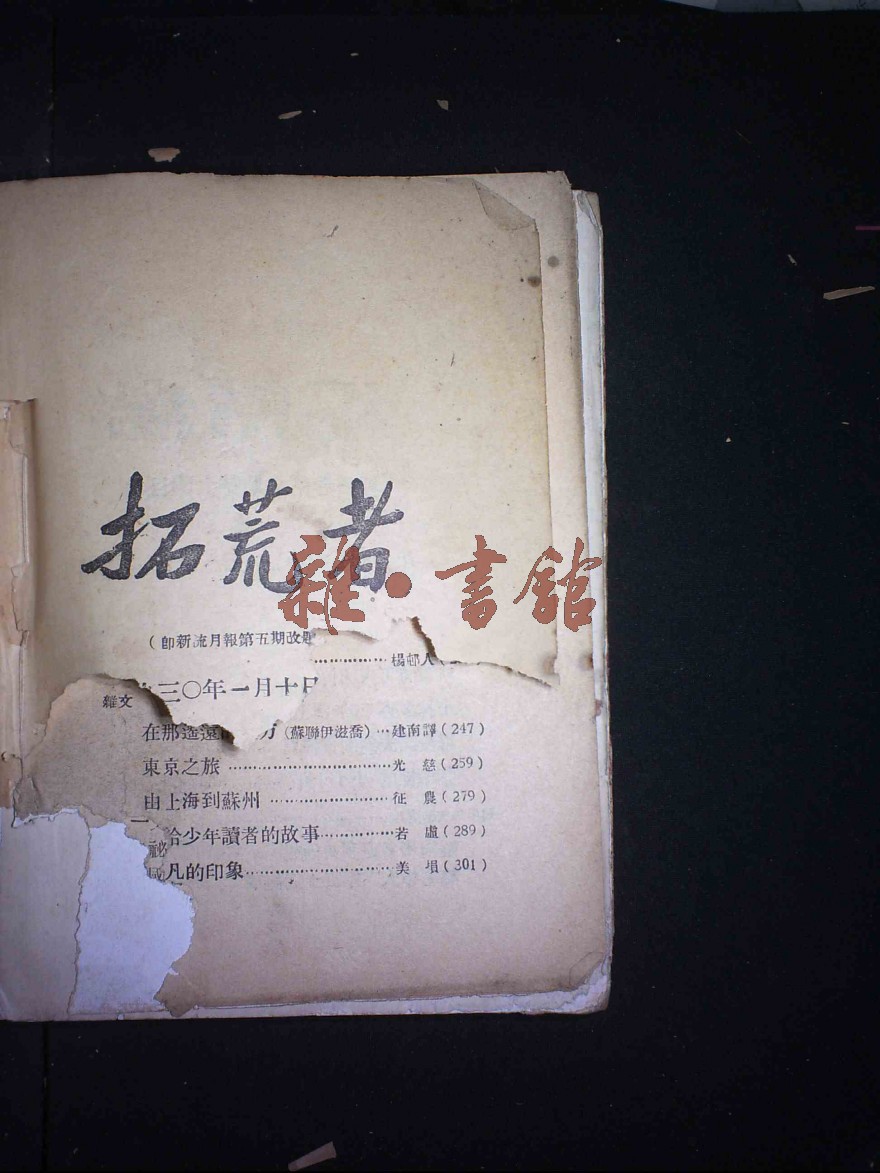 拓荒者
雜·書館
（卽新流月報第五期改題
……………楊邨人
三〇年一月十日
雜文
在那遙遠 方（蘇聯伊滋喬）…建南譯(247)
東京之旅……………………………光 慈(259)
由上海到蘇州……………………征 農(279)
給少年讀者的故事……………若 虛(289)
凡的印象…………………………美 (301)